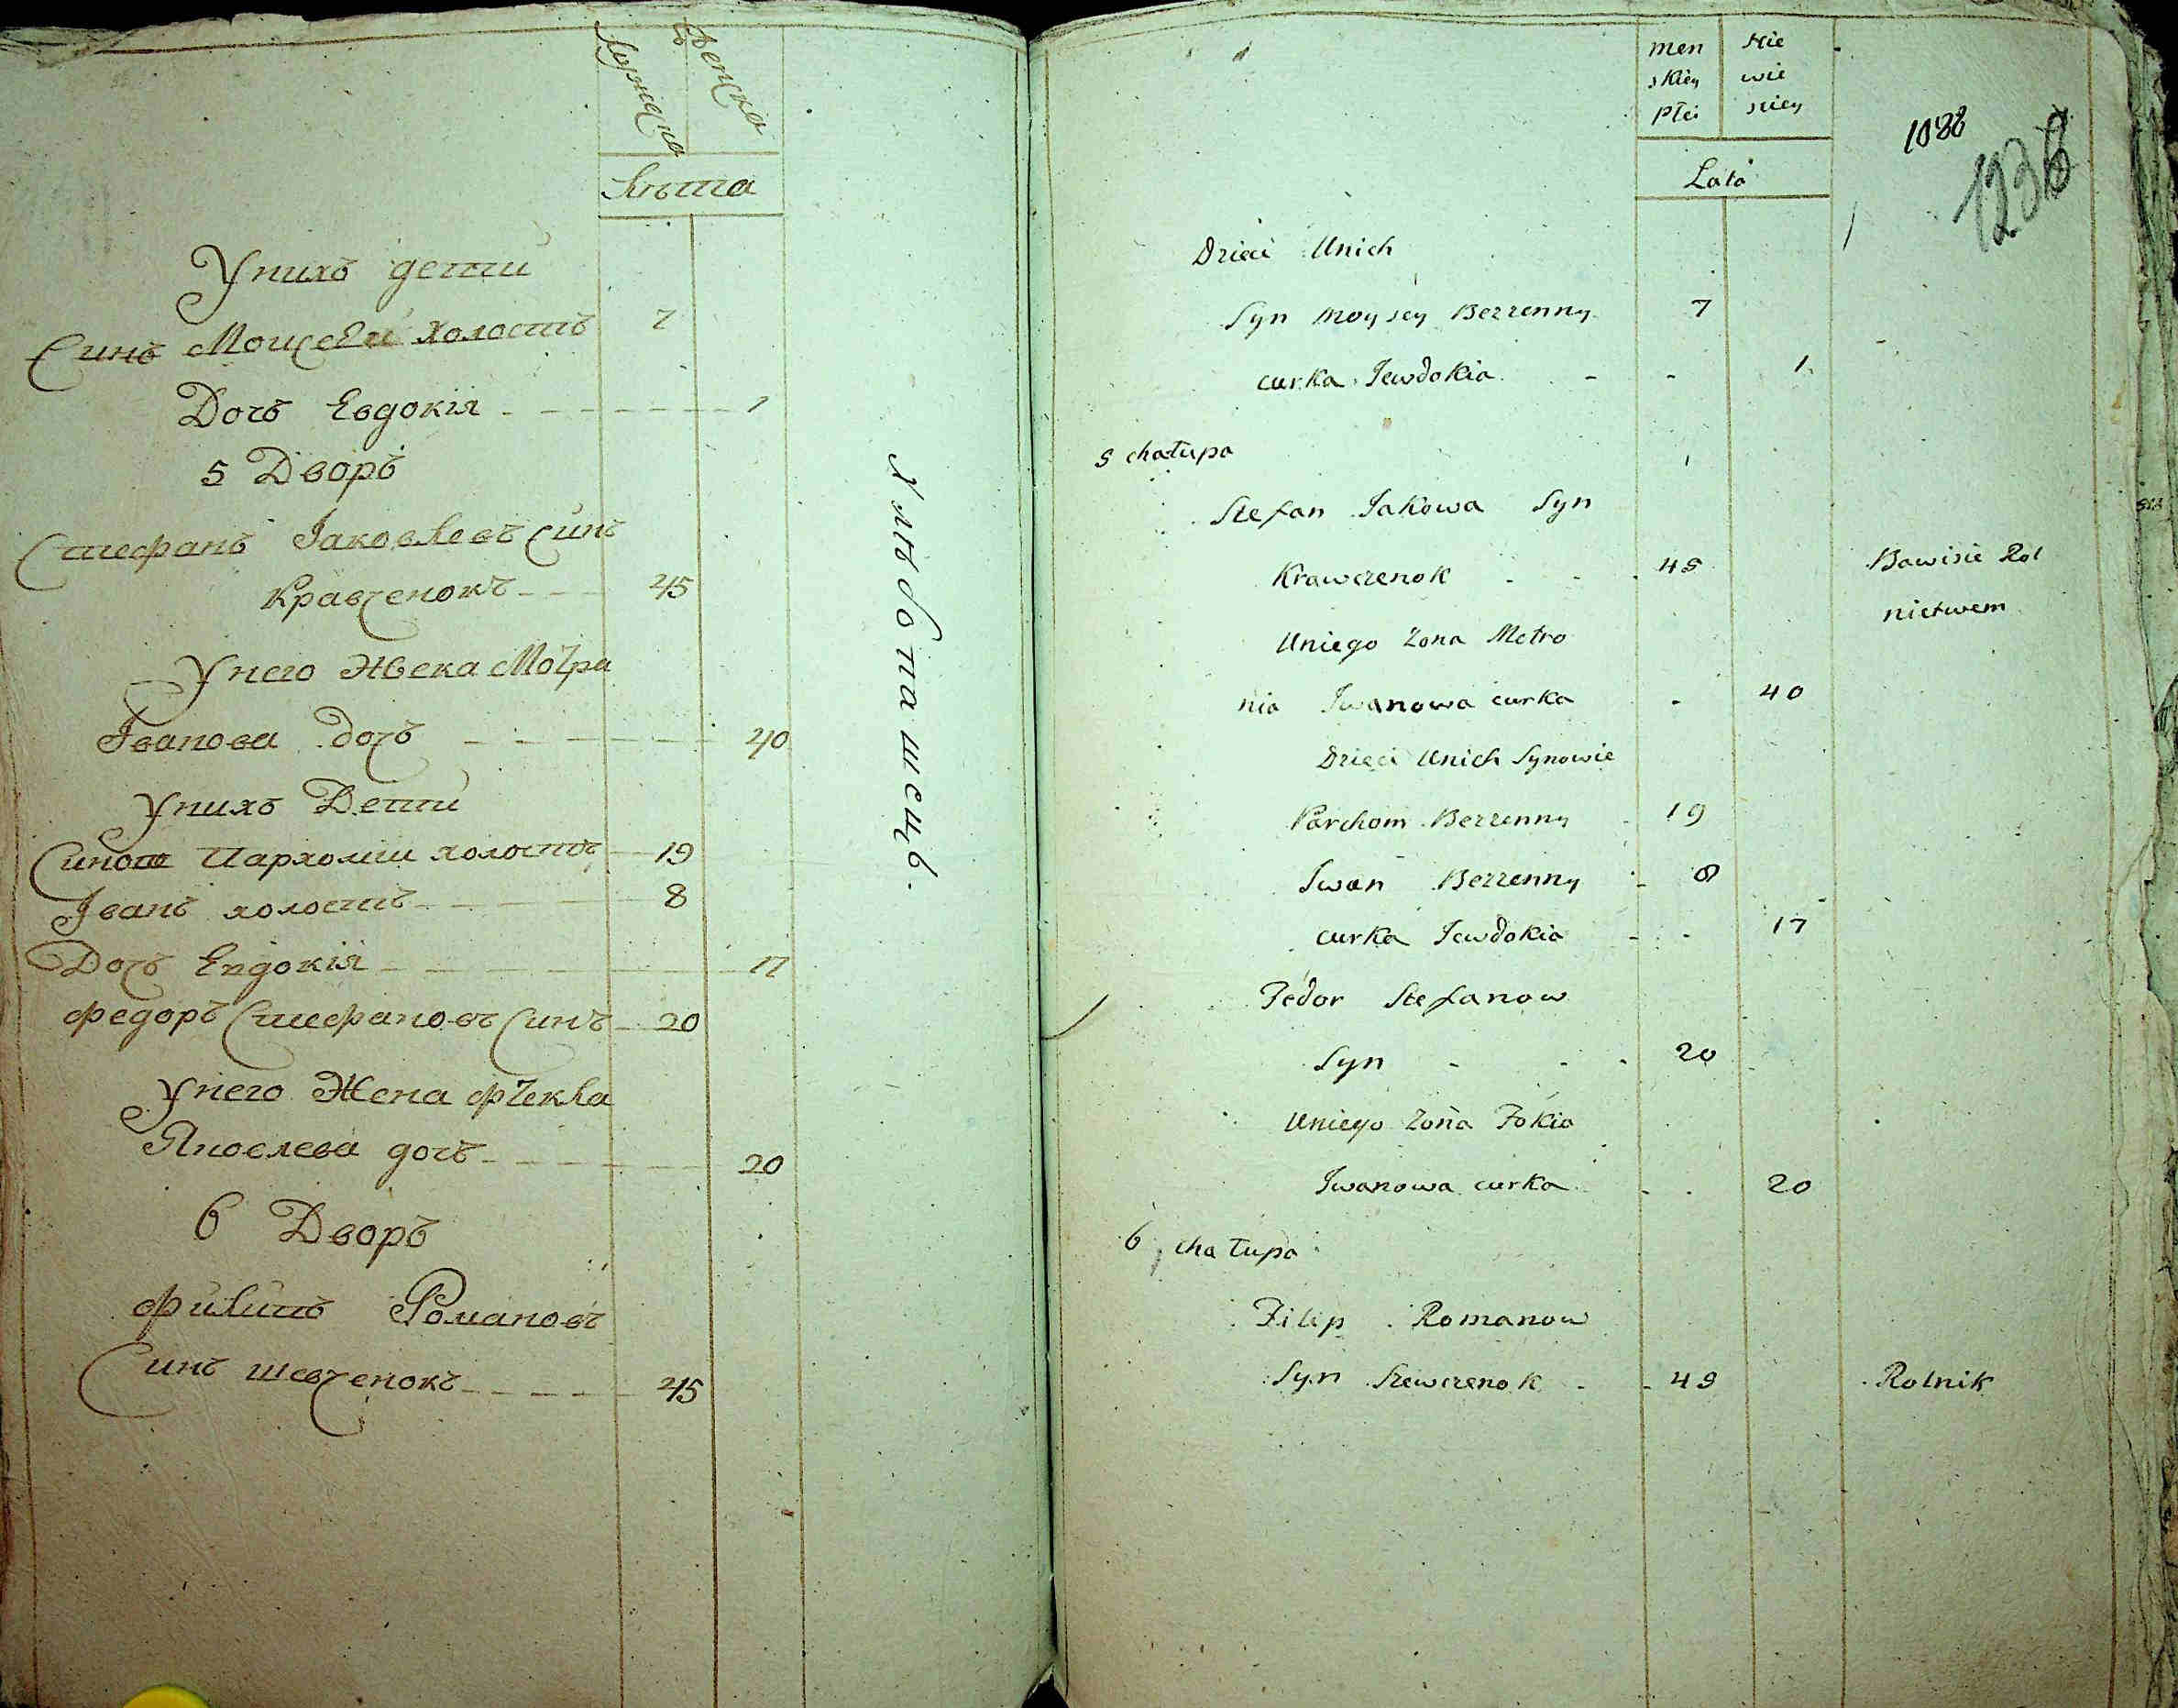 Мужеска
Женска
Лѣта
У нихъ дети
Синъ Моисей холостъ 7
Дочъ Евдокія 1
5 Дворъ
Стефанъ Іаковлевъ Синъ
Кравченокъ 45
У него Жена Мотра
Іванова дочъ 40
У нихъ Дети
Пархомъ холостъ 19
Іванъ холостъ 8
Дочъ Евдокія 17
Федоръ Стефановъ Синъ 20
У него Жена Фекла
дочъ 20
6 Дворъ
Филипъ Романовъ
Синъ Шевченокъ 45
Хлѣбопашецъ.
men skiey Płci
Nie wie sciey
Lata
1088
1238
Dzieci Unich
Syn Moysey Bezzenny 7
curka Jewdokia - - 1
5 chałupa
Stefan Jakowa Syn
Krawczenok - - 45 Bawisie Rol
nictwem
Uniego Zona Motro
nia Jwanowa curka - 40
Dzieci Unich Synowie
Parchom Bezzenny 19
Jwan Bezzenny - 8
curka Jewdokia - - 17
Fedor Stefanow
Syn - - - 20
Uniego Zona Fokia
Jwanowa curka - - 20
6 chałupa
Filip Romanow
Syn Szewczenok - - 45 Rolnik